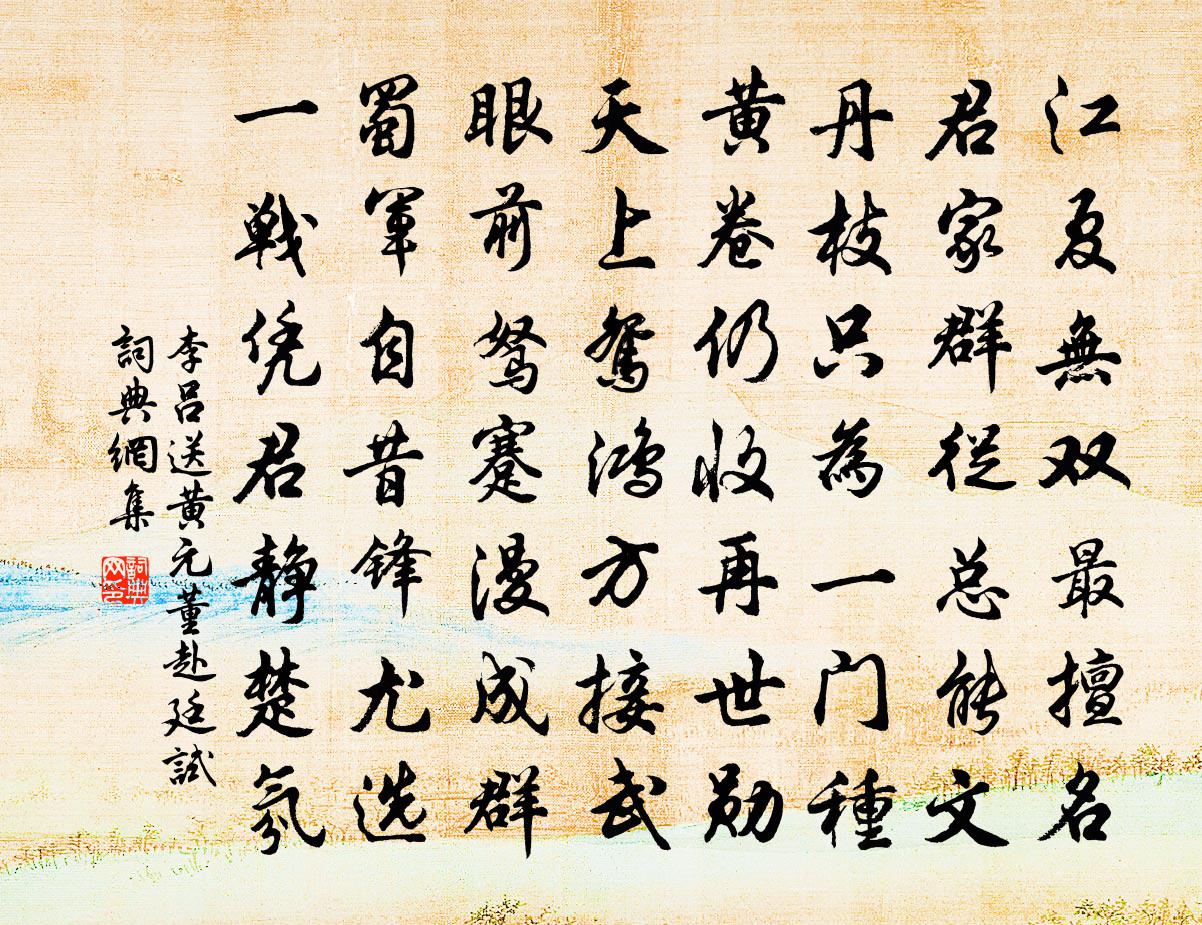 江夏無双最擅名
君家群從总能文
丹枝只為一门種
黄卷仍收再世勋
天上鴛鴻方接武
眼前駑蹇漫成群
蜀軍自昔锋尤选
一戦凭君静楚氛
李吕送黄元董赴廷試
詞典網集